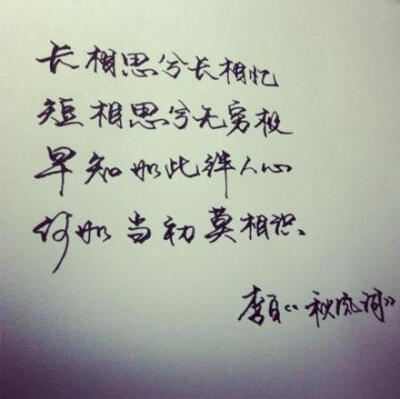 长相思兮长相忆
短相思兮无穷极
早知如此绊人心
何如当初莫相识。
李白《秋风词》